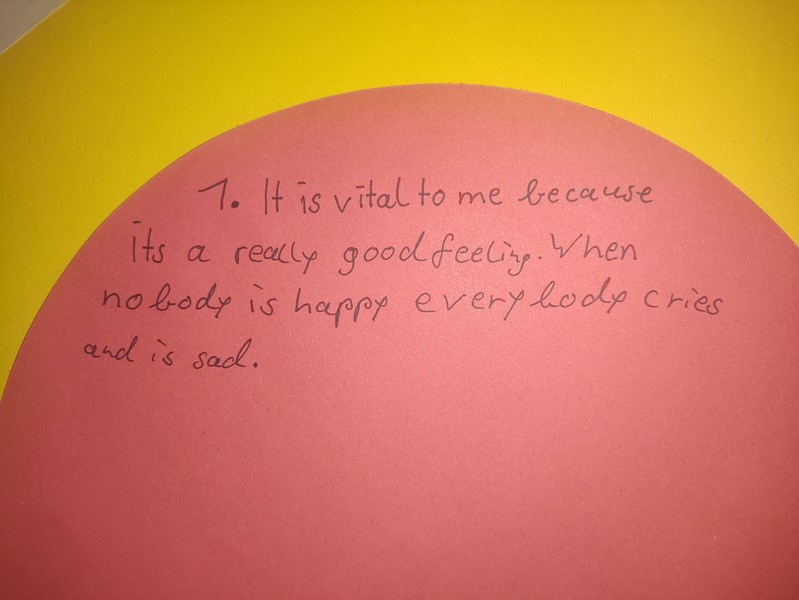 1. It is vital to me because
its a really good feeling. When
nobody is happy everybody cries
and is sad.